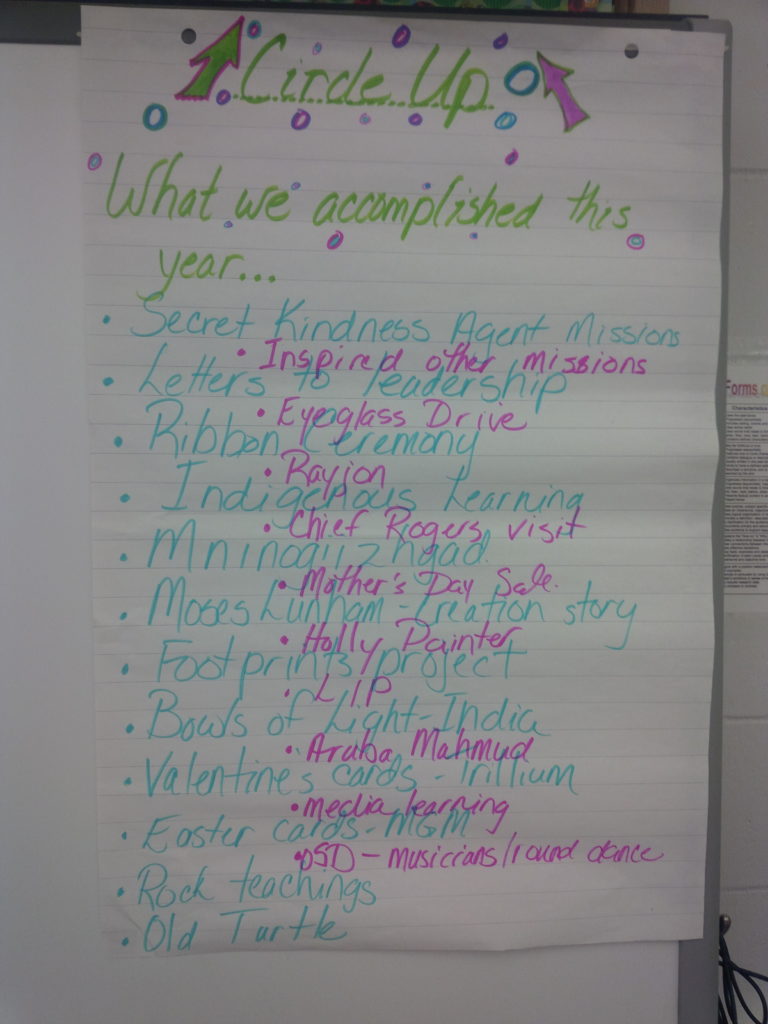 Circle Up
What we accomplished this
year...
• Secret Kindness Agent Missions
• Inspired other missions
• Letters to leadership
• Eyeglass Drive
• Ribbon Ceremony
• Rayjon
• Indigenous Learning
• Chief Rogers visit
• Mother's Day Sale.
• Moses Lunham - Creation story
• Holly Painter
• Footprints project
• LIP
• Bowls of Light - India
• Aruba Mahmud
• Valentines cards - Trillium
• media learning
• Easter cards - MGM
• DSD - musicians/round dance
• Rock teachings
• Old Turtle
Forms
Characteristics